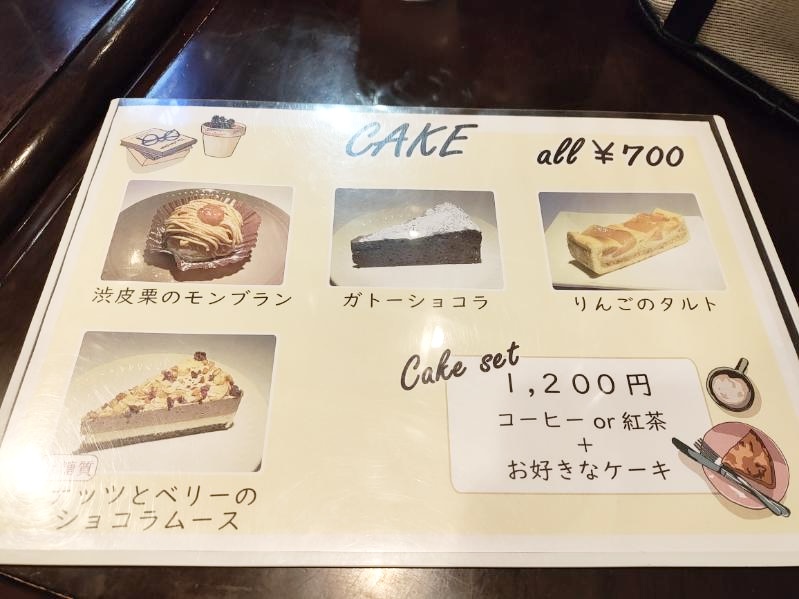 CAKE
all ¥700
渋皮栗のモンブラン
ガトーショコラ
りんごのタルト
糖質
ナッツとベリーの
ショコラムース
Cake set
1,200円
コーヒー or 紅茶
+
お好きなケーキ